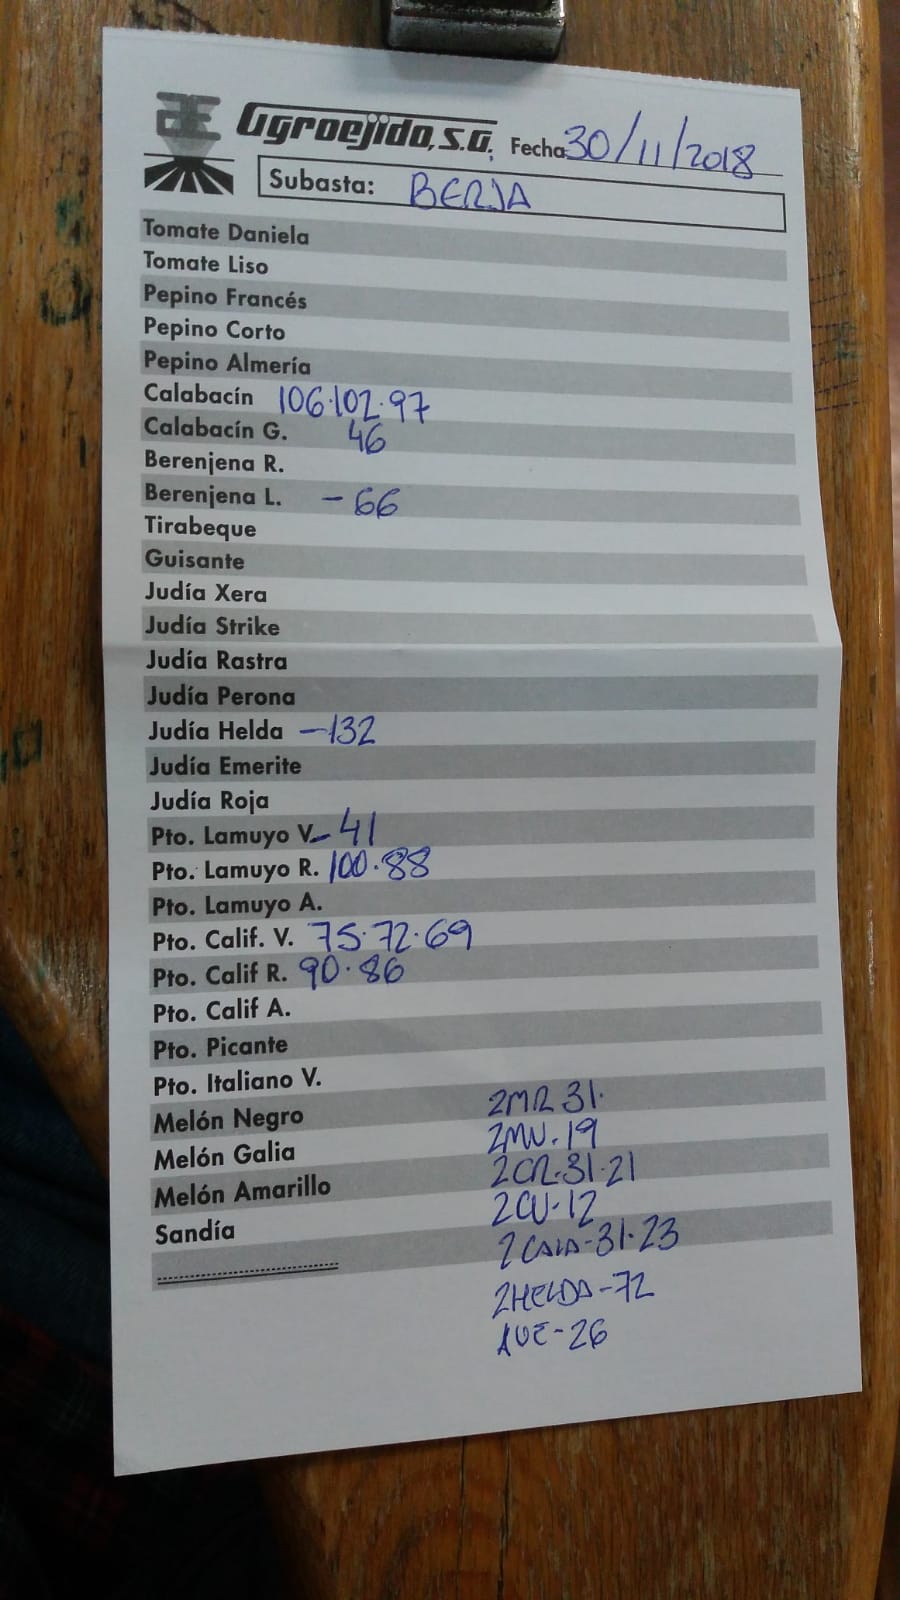 AE Agroejido, S.A. Fecha 30/11/2018
Subasta: BERJA
Tomate Daniela
Tomate Liso
Pepino Francés
Pepino Corto
Pepino Almería
Calabacín 106·102·97
Calabacín G. 46
Berenjena R.
Berenjena L. - 66
Tirabeque
Guisante
Judía Xera
Judía Strike
Judía Rastra
Judía Perona
Judía Helda -132
Judía Emerite
Judía Roja
Pto. Lamuyo V. - 41
Pto. Lamuyo R. 100·88
Pto. Lamuyo A.
Pto. Calif. V. 75·72·69
Pto. Calif R. 90·86
Pto. Calif A.
Pto. Picante
Pto. Italiano V.
Melón Negro
Melón Galia
Melón Amarillo
Sandía
2MR 31.
2MV. 19
2CR.31.21
2CV.12
2CALA-31.23
2HELDA-72
AVE-26